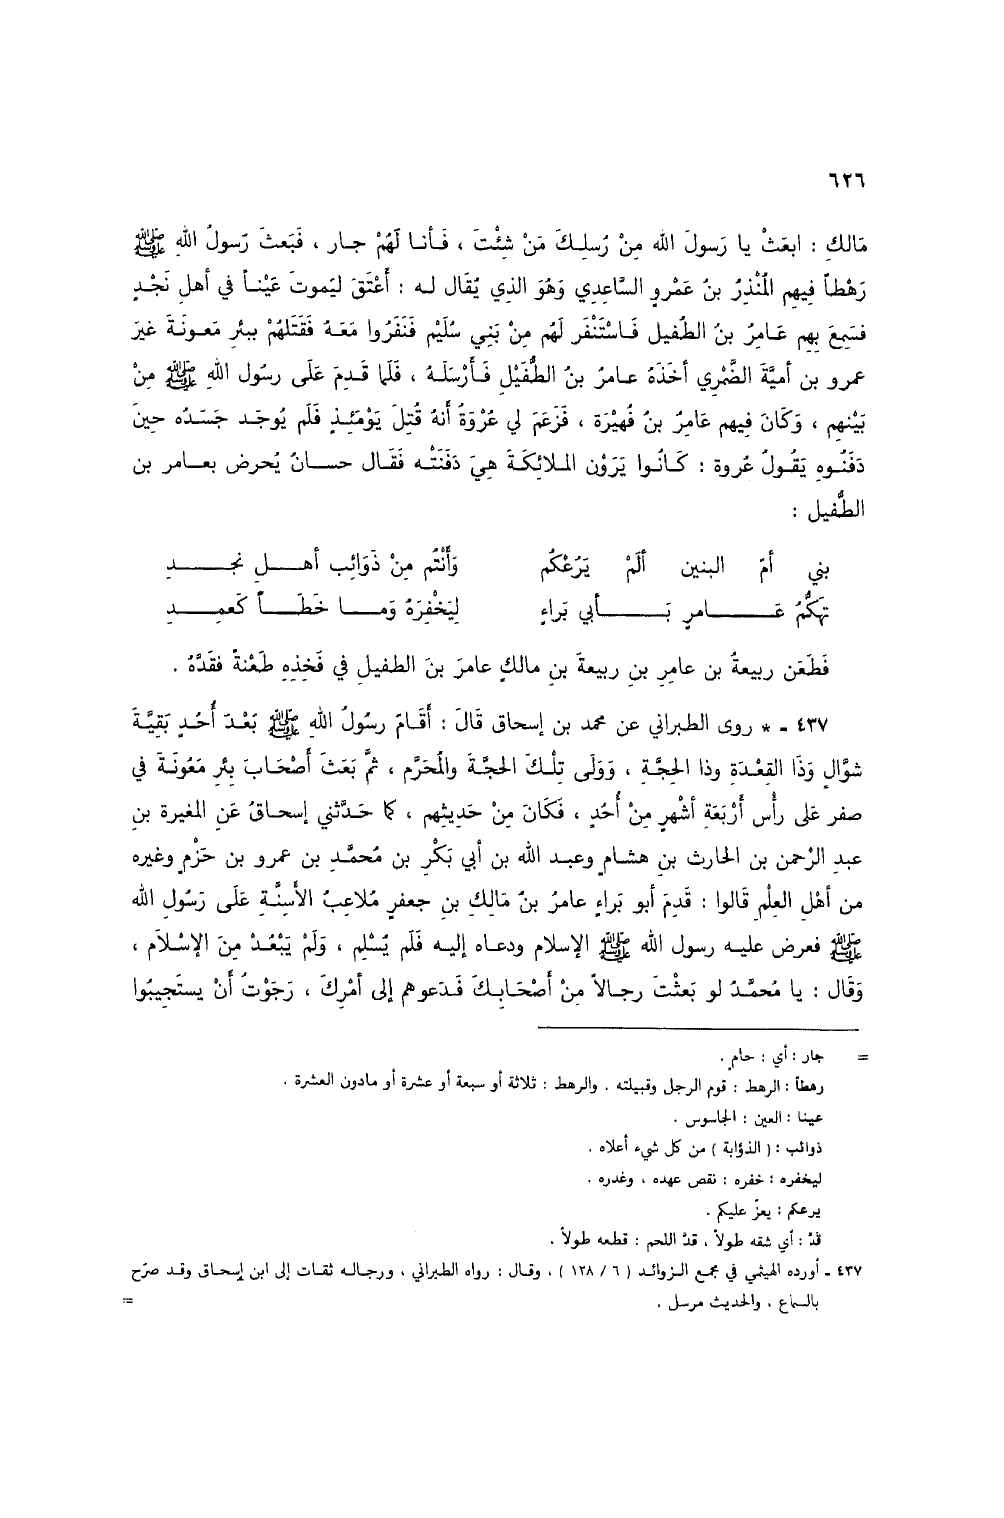 ٦٢٦
مَالكِ : ابعَثْ يا رَسولَ الله مِنْ رُسلِـكَ مَنْ شِئْتَ ، فَـأنـا لَهُمْ جـار ، فَبَعثَ رَسولُ اللهِ ﷺ
رَهْطاً فِيهِم الُمنْذِرُ بنُ عَمْرٍو السَّاعِدي وَهُوَ الذي يُقَال لـه : أعْتَقَ لَيَموتَ عَيْنـاً في أهلِ نَجْـدٍ
فسَمِعَ بِهِم عَـامِرُ بنُ الطُفيل فَـاسْتَنْفَر لَهُم مِنْ بَنِي سُلَيْم فَنَفَرُوا مَعَـهُ فَقَتَلَهُمْ ببئر مَعـونَـةَ غيرَ
عمرو بن أميَّةَ الضَّمْرِي أخَذَهُ عـامرُ بنُ الطُّفَيْلِ فَـأرْسَلَـهُ ، فَلَما قَـدِمَ عَلَى رسُول اللهِ ﷺ مِنْ
بَيْنِهم ، وَكَانَ فيهِم عَامِرُ بنُ فُهَيْرَة ، فَزَعَمَ لي عُرْوَةُ أنهُ قُتِلَ يَوْمَئِـذٍ فَلَم يُوجَـد جَسَدُه حِينَ
دَفَنُـوهِ يَقُـولُ عُروة : كَـانُـوا يَرَوْن المـلائِكَـةَ هِيَ دَفَنَتْـه فَقَـال حسـانُ يُحرض بعـامر بن
الطُّفيل :
بني أمّ البنين ألَمْ يَرُعْكُم وَأنْتُم مِنْ ذَوَائِب أهـلِ نجـدِ
تَهَكُّمُ عَـامرٍ بَـأبي بَراءِ لِيَخْفِرَهُ وَمـا خَطَـأ كَعمـدِ
فَطَعَن ربيعةُ بن عامِرِ بنِ ربيعةَ بنِ مالكٍ عامرَ بنَ الطفيلِ في فَخِذِهِ طَعْنةً فقَدَّهُ .
٤٣٧ - * روى الطبراني عن محمد بن إسحاق قَالَ : أَقَامَ رسُولُ اللهِ ﷺ بَعْدَ أُحُدٍ بَقِيَّةَ
شوَّالٍ وَذَا القِعْدَةِ وذا الحِجَّـةِ ، وَوَلَى تِلْـكَ الحجَّةَ والُمحَرَّم ، ثمَّ بَعَثَ أَصْحَابَ بِئْرِ مَعُونَـةَ في
صفر عَلى رأْس أَرْبَعَةِ أشْهرٍ مِنْ أُحُدٍ ، فَكَانَ مِنْ حَدِيثِهم ، كما حَـدَّثني إسحـاقُ عَنِ المغيرة بنِ
عبدِ الرّحمن بن الحارث بنِ هشامٍ وعبـد الله بن أبي بَكْرِ بن مُحمَّـدِ بن عمرو بن حَزْمٍ وغيره
من أهْلِ العِلْمِ قَالوا : قَدِمَ أبو بَراءٍ عامرُ بنُ مَالكِ بن جعفرٍ مُلاعِبُ الأَسِنَّـةِ عَلَى رَسُولِ الله
ﷺ فعرض عليـه رسول الله ﷺ الإسلام ودعـاه إليـه فَلَم يُسْلِم ، وَلَمْ يَبْعُـدْ مِنَ الإسْلاَم ،
وَقَال : يا مُحمَّـدُ لو بَعثْتَ رجـالاً مِنْ أَصْحَـابِـكَ فَـدَعوهُم إلى أمْرِكَ ، رَجَوْتُ أنْ يستَجِيبُوا
= جار : أي : حامٍ .
رهطاً : الرهط : قوم الرجل وقبيلته . والرهط : ثلاثة أو سبعة أو عشرة أو مادون العشرة .
عينا : العين : الجاسوس .
ذوائب : ( الذؤابة ) من كل شيء أعلاه .
ليخفره : خفره : نقص عهده ، وغدره .
يرعكم : يعزّ عليكم .
قدَّ : أي شقه طولاً ، قدّ اللحم : قطعه طولاً .
٤٣٧ - أورده الهيثمي في مجمع الزوائد ( ٦ / ١٢٨ ) ، وقال : رواه الطبراني ، ورجاله ثقات إلى ابن إسحاق وقد صرّح
بالسماع ، والحديث مرسل . =